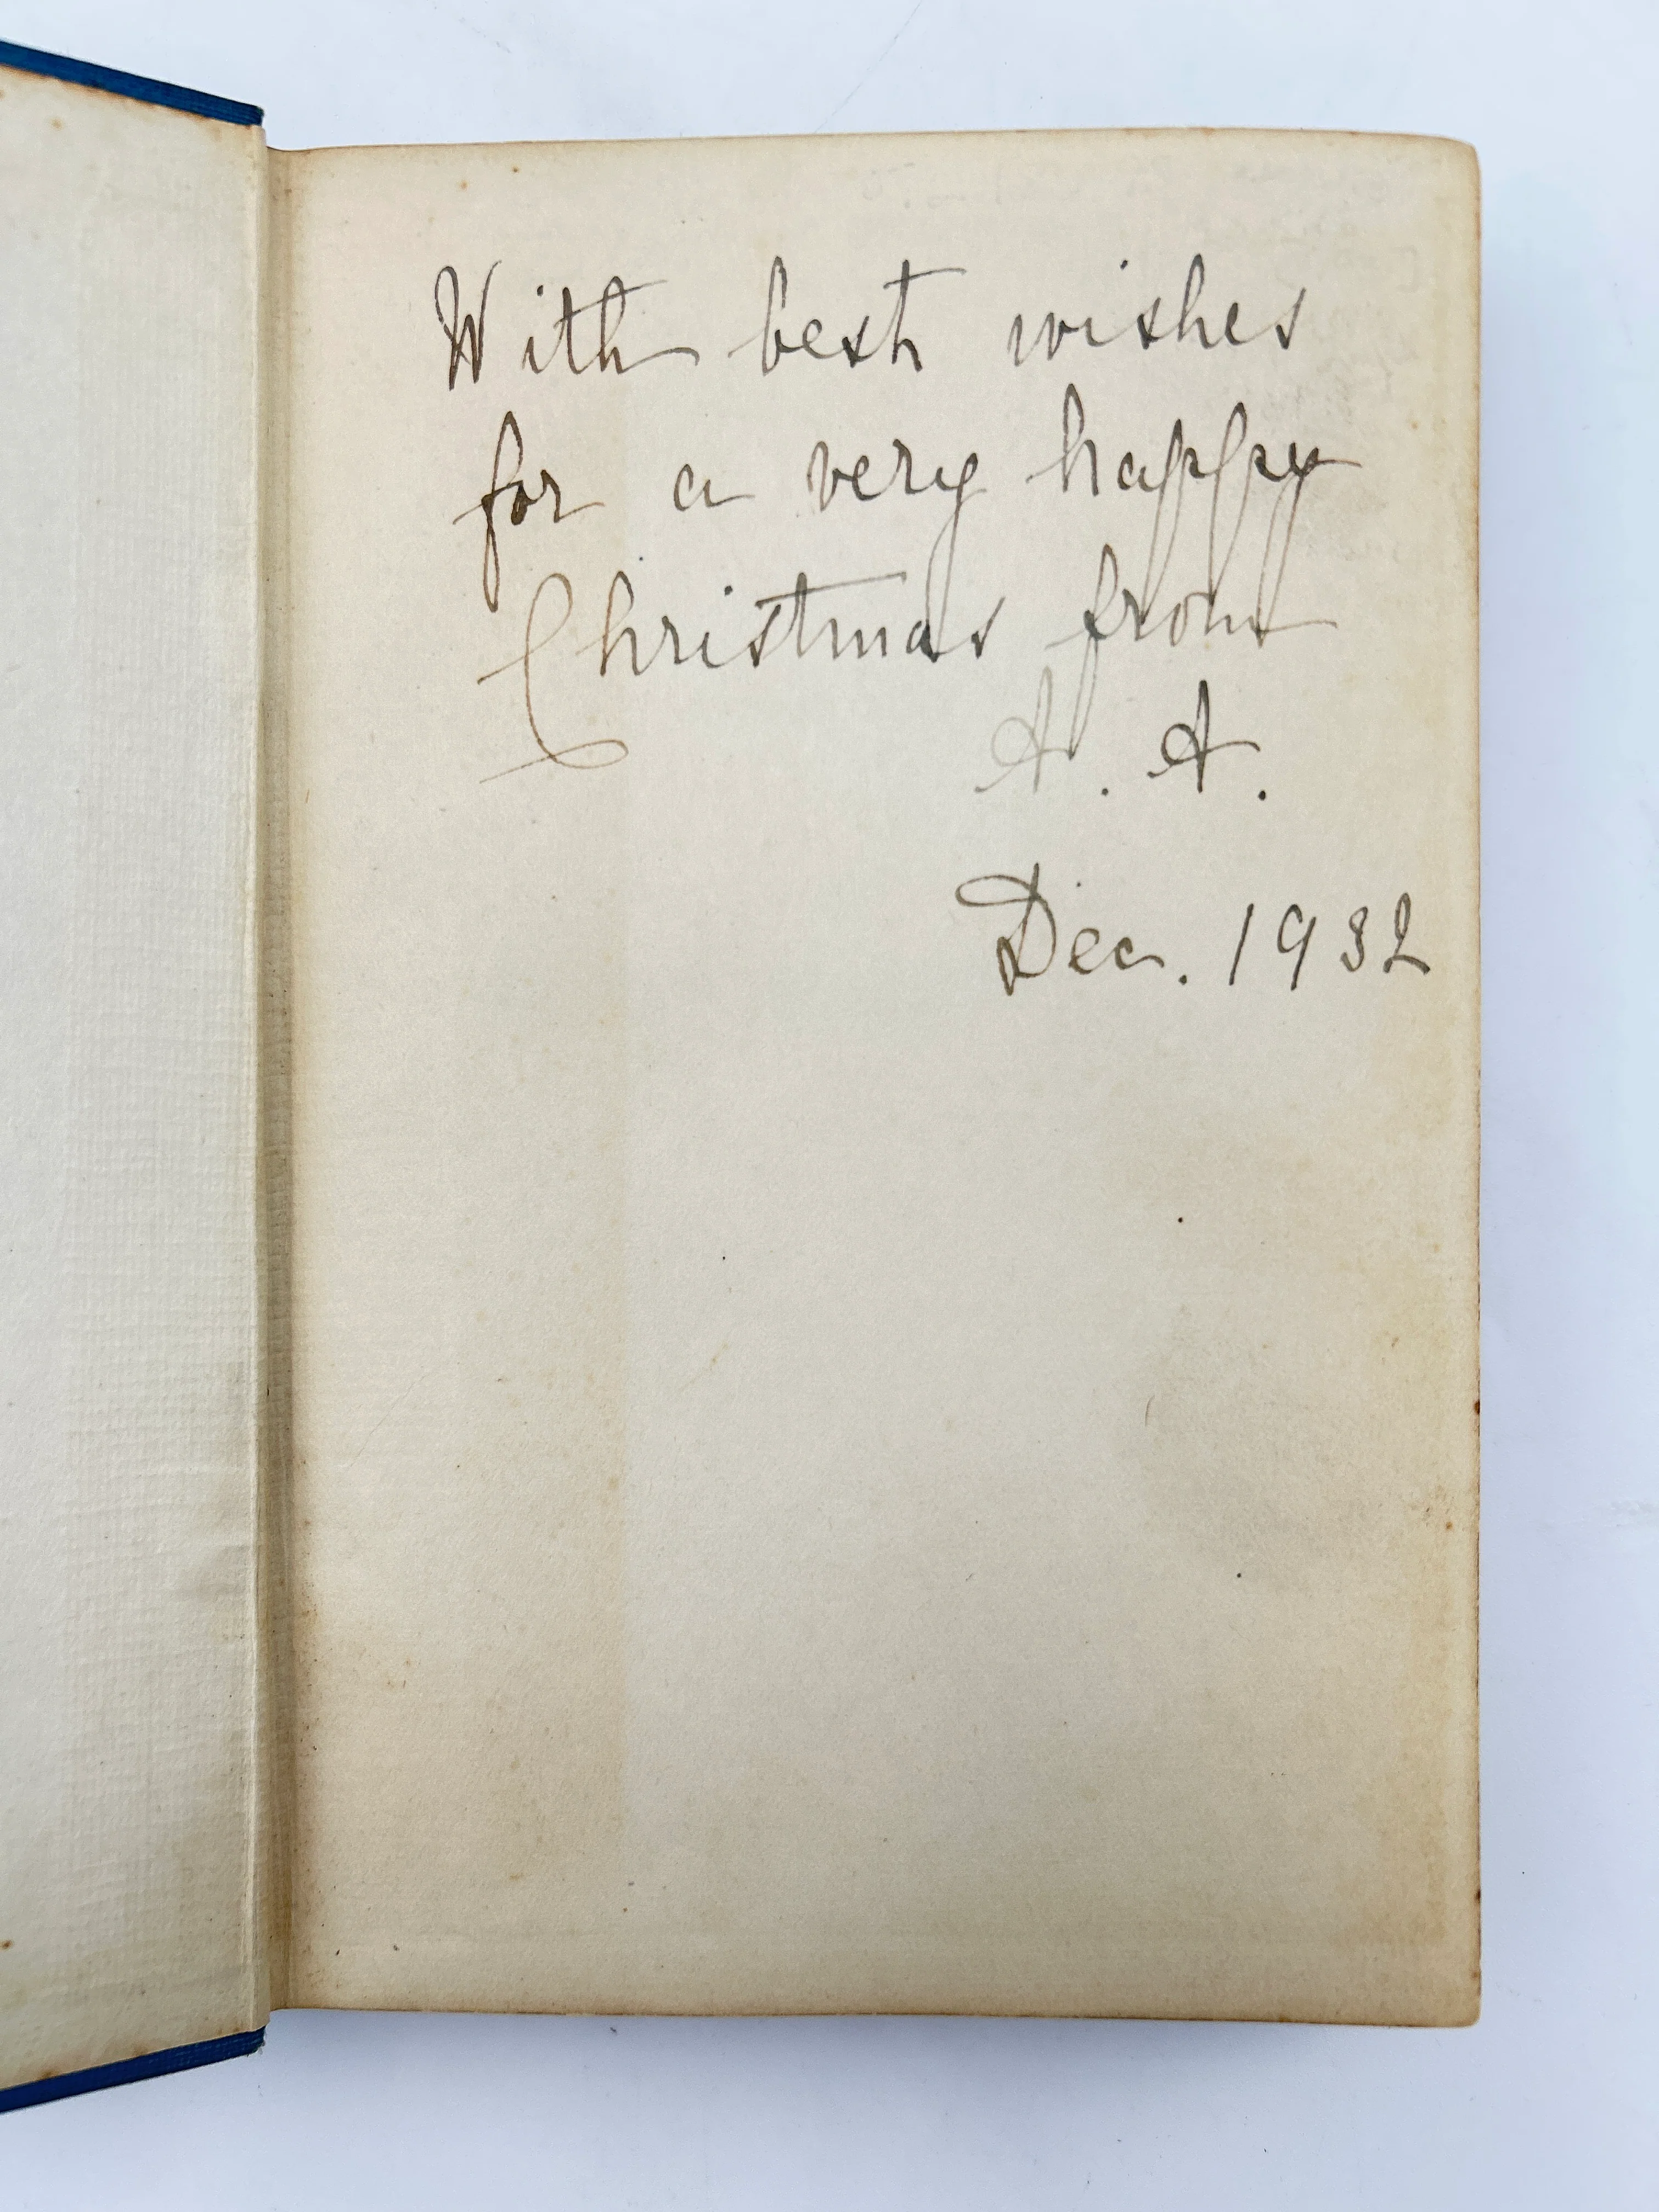 With best wishes
for a very happy
Christmas from
A. A.
Dec. 1932